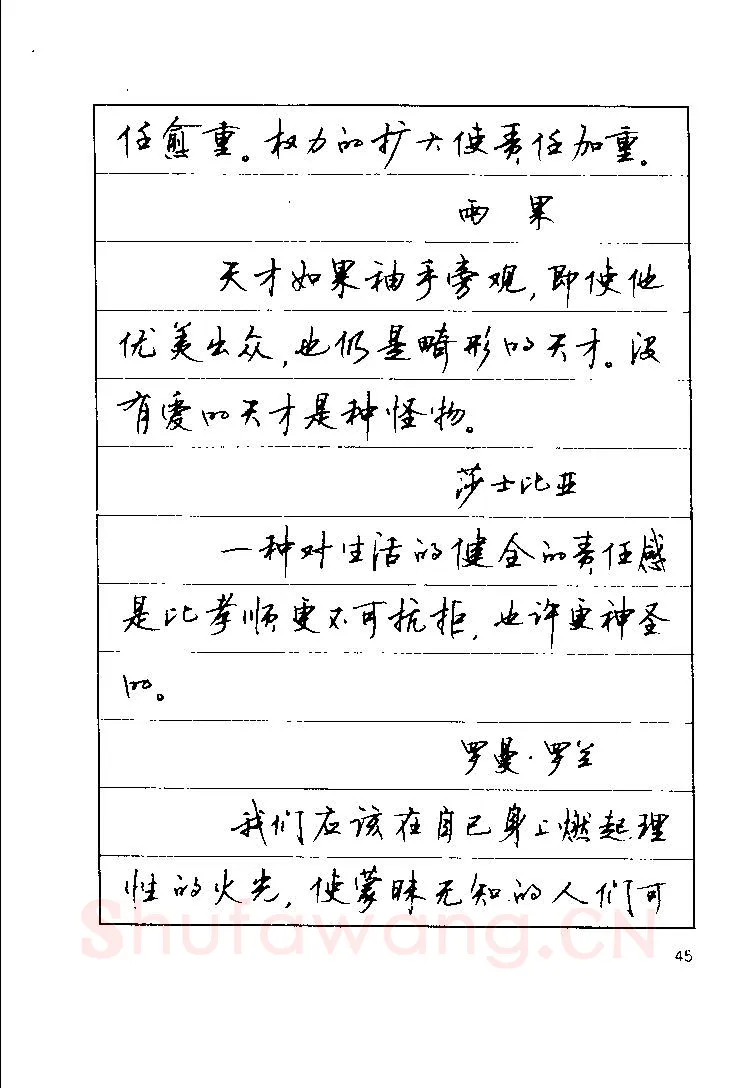 任愈重。权力的扩大使责任加重。
雨果
天才如果袖手旁观，即使他
优美出众，也仍是畸形的天才。没
有爱的天才是种怪物。
莎士比亚
一种对生活的健全的责任感
是比孝顺更不可抗拒，也许更神圣
的。
罗曼·罗兰
我们应该在自己身上燃起理
性的火光，使蒙昧无知的人们可
Shufawang.CN
45